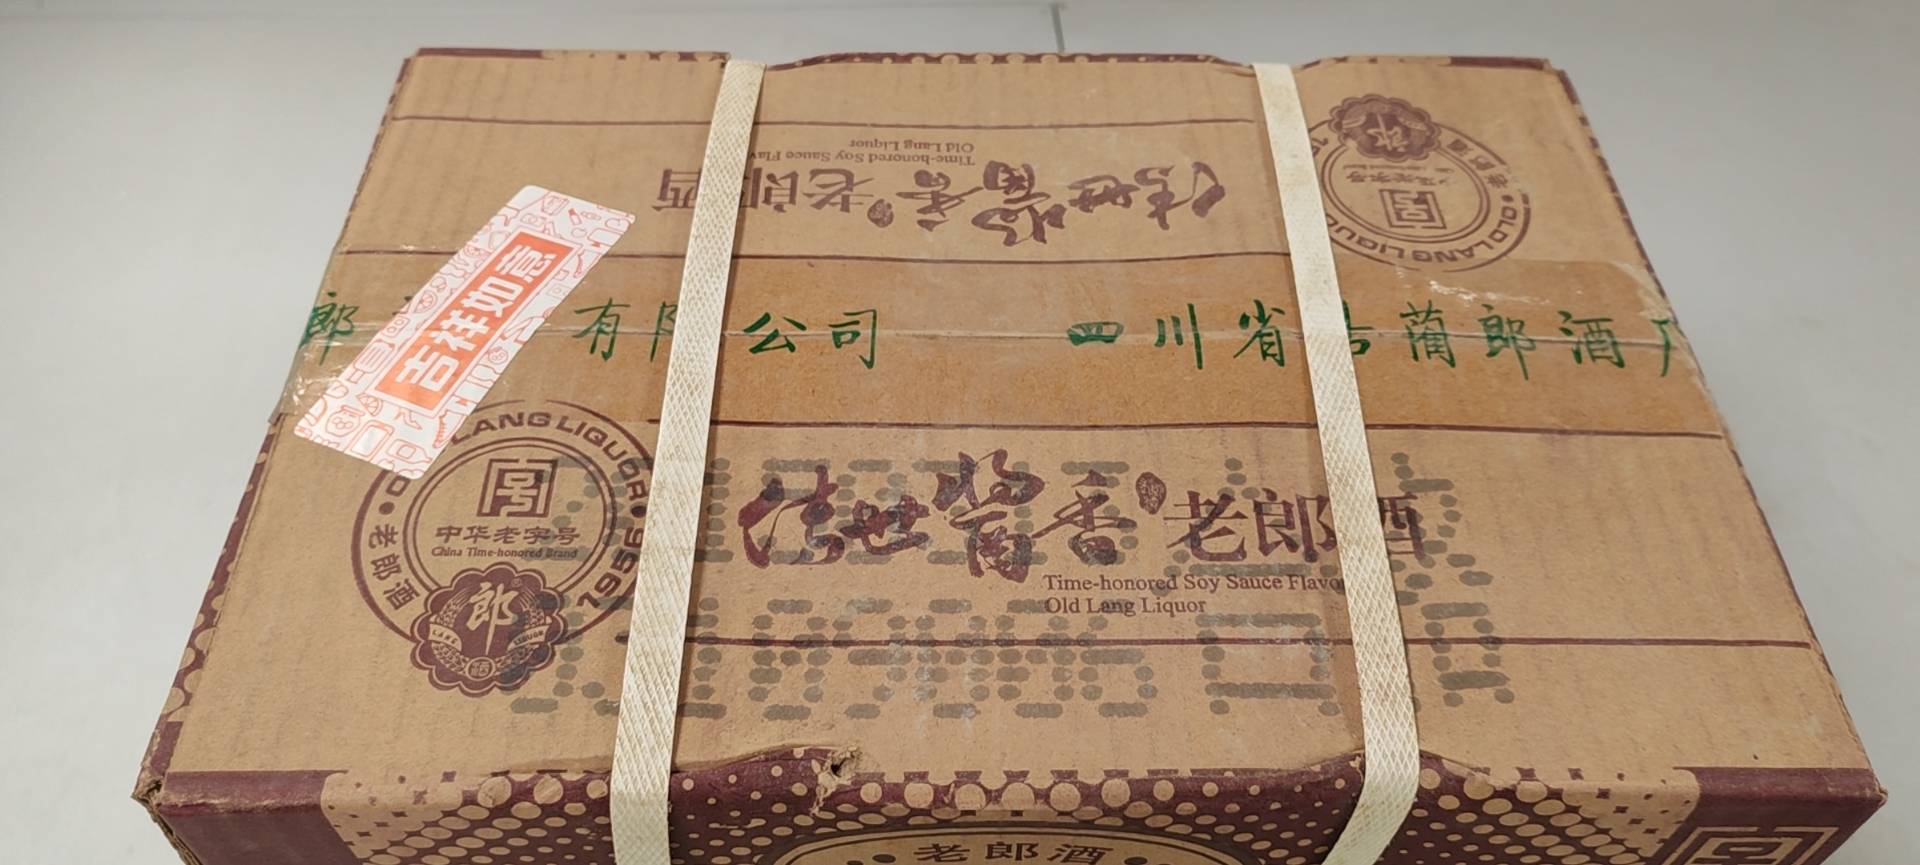 Time-honored Soy Sauce Flav
Old Lang Liquor
传世酱香老郎酒
老郎酒
中华老字号
OLD LANG LIQUOR
吉祥如意
郎 有限公司 四川省古蔺郎酒厂
LANG LIQUOR
老郎酒
1956
中华老字号
China Time-honored Brand
郎
LANG LIQUOR
传世酱香老郎酒
Time-honored Soy Sauce Flavo
Old Lang Liquor
老郎酒